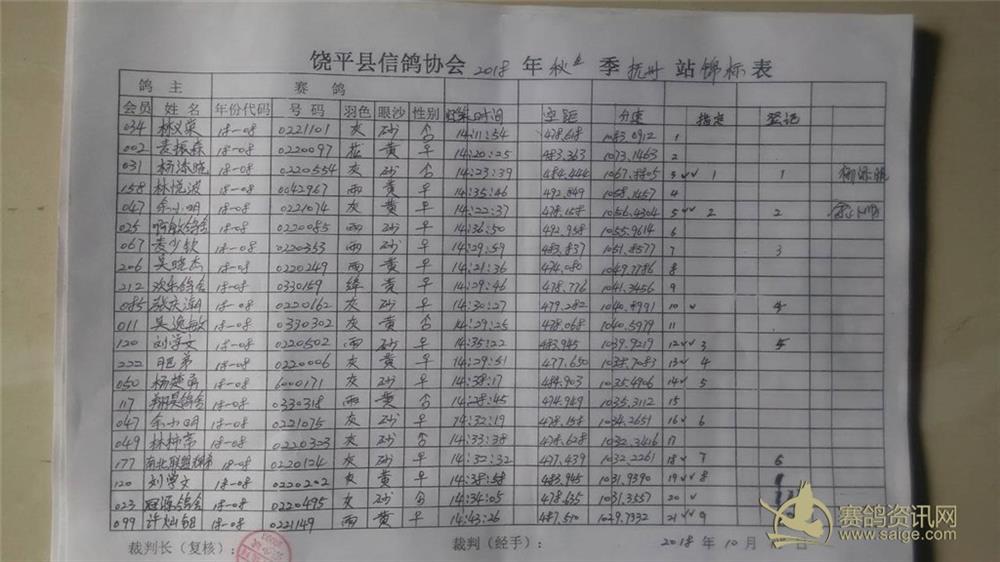 饶平县信鸽协会2018年秋季抚州站锦标表
鸽主 赛鸽
会员 姓名 年份代码 号码 羽色 眼沙 性别 归巢时间 空距 分速 指定 登记
034 林义英 18-08 0221101 灰 砂 14:11:54 478.618 1083.0912 1
002 黄振森 18-08 0220097 黄 14:20:25 483.363 1073.1463 2
031 18-08 0220554 灰 砂 14:23:39 484.444 1067.8805 3 1 1
158 林悦波 18-08 0042967 雨 黄 14:35:46 492.849 1058.1457 4
047 余小明 18-08 0221074 灰 黄 14:22:37 478.158 1056.4304 5 2 2
025 18-08 0220085 雨 14:36:50 492.958 1055.9614 6
067 黄少钦 18-08 0220353 雨 砂 14:29:59 483.837 1051.8577 7 3
206 吴晓杰 18-08 0220249 雨 黄 14:21:36 474.080 1049.7786 8
212 欢乐鸽舍 18-08 0330159 绛 黄 14:29:46 478.776 1041.3456 9
085 18-08 0220162 灰 砂 14:30:27 479.282 1040.8991 10 4
011 吴逸敏 18-08 0330302 灰 黄 14:29:25 478.068 1040.5979 11
120 刘学文 18-08 0220502 雨 砂 14:35:22 483.945 1039.9219 12 3 5
222 18-08 0220006 灰 黄 14:29:51 477.650 1038.7083 13 4
050 杨楚勇 18-08 6000171 灰 砂 14:38:17 484.903 1035.4906 14 5
117 翔琪鸽舍 18-08 0330318 雨 黄 14:28:45 474.949 1035.3112 15
047 余小明 18-08 0221075 灰 砂 14:32:19 478.158 1034.2651 16 6
049 18-08 0220323 灰 砂 14:33:38 478.628 1032.3416 17
177 18-08 0220124 灰 砂 14:32:32 477.439 1032.2261 18 7 6
120 刘学文 18-08 0220202 灰 黄 14:38:58 483.945 1031.9390 19 8
023 18-08 0220495 灰 砂 14:34:05 478.635 1031.3557 20
099 许灿明 18-08 0221149 雨 黄 14:43:26 487.510 1029.7332 21 9
裁判长（复核）： 裁判（经手）： 2018年10月 日
赛鸽资讯网
www.saige.com